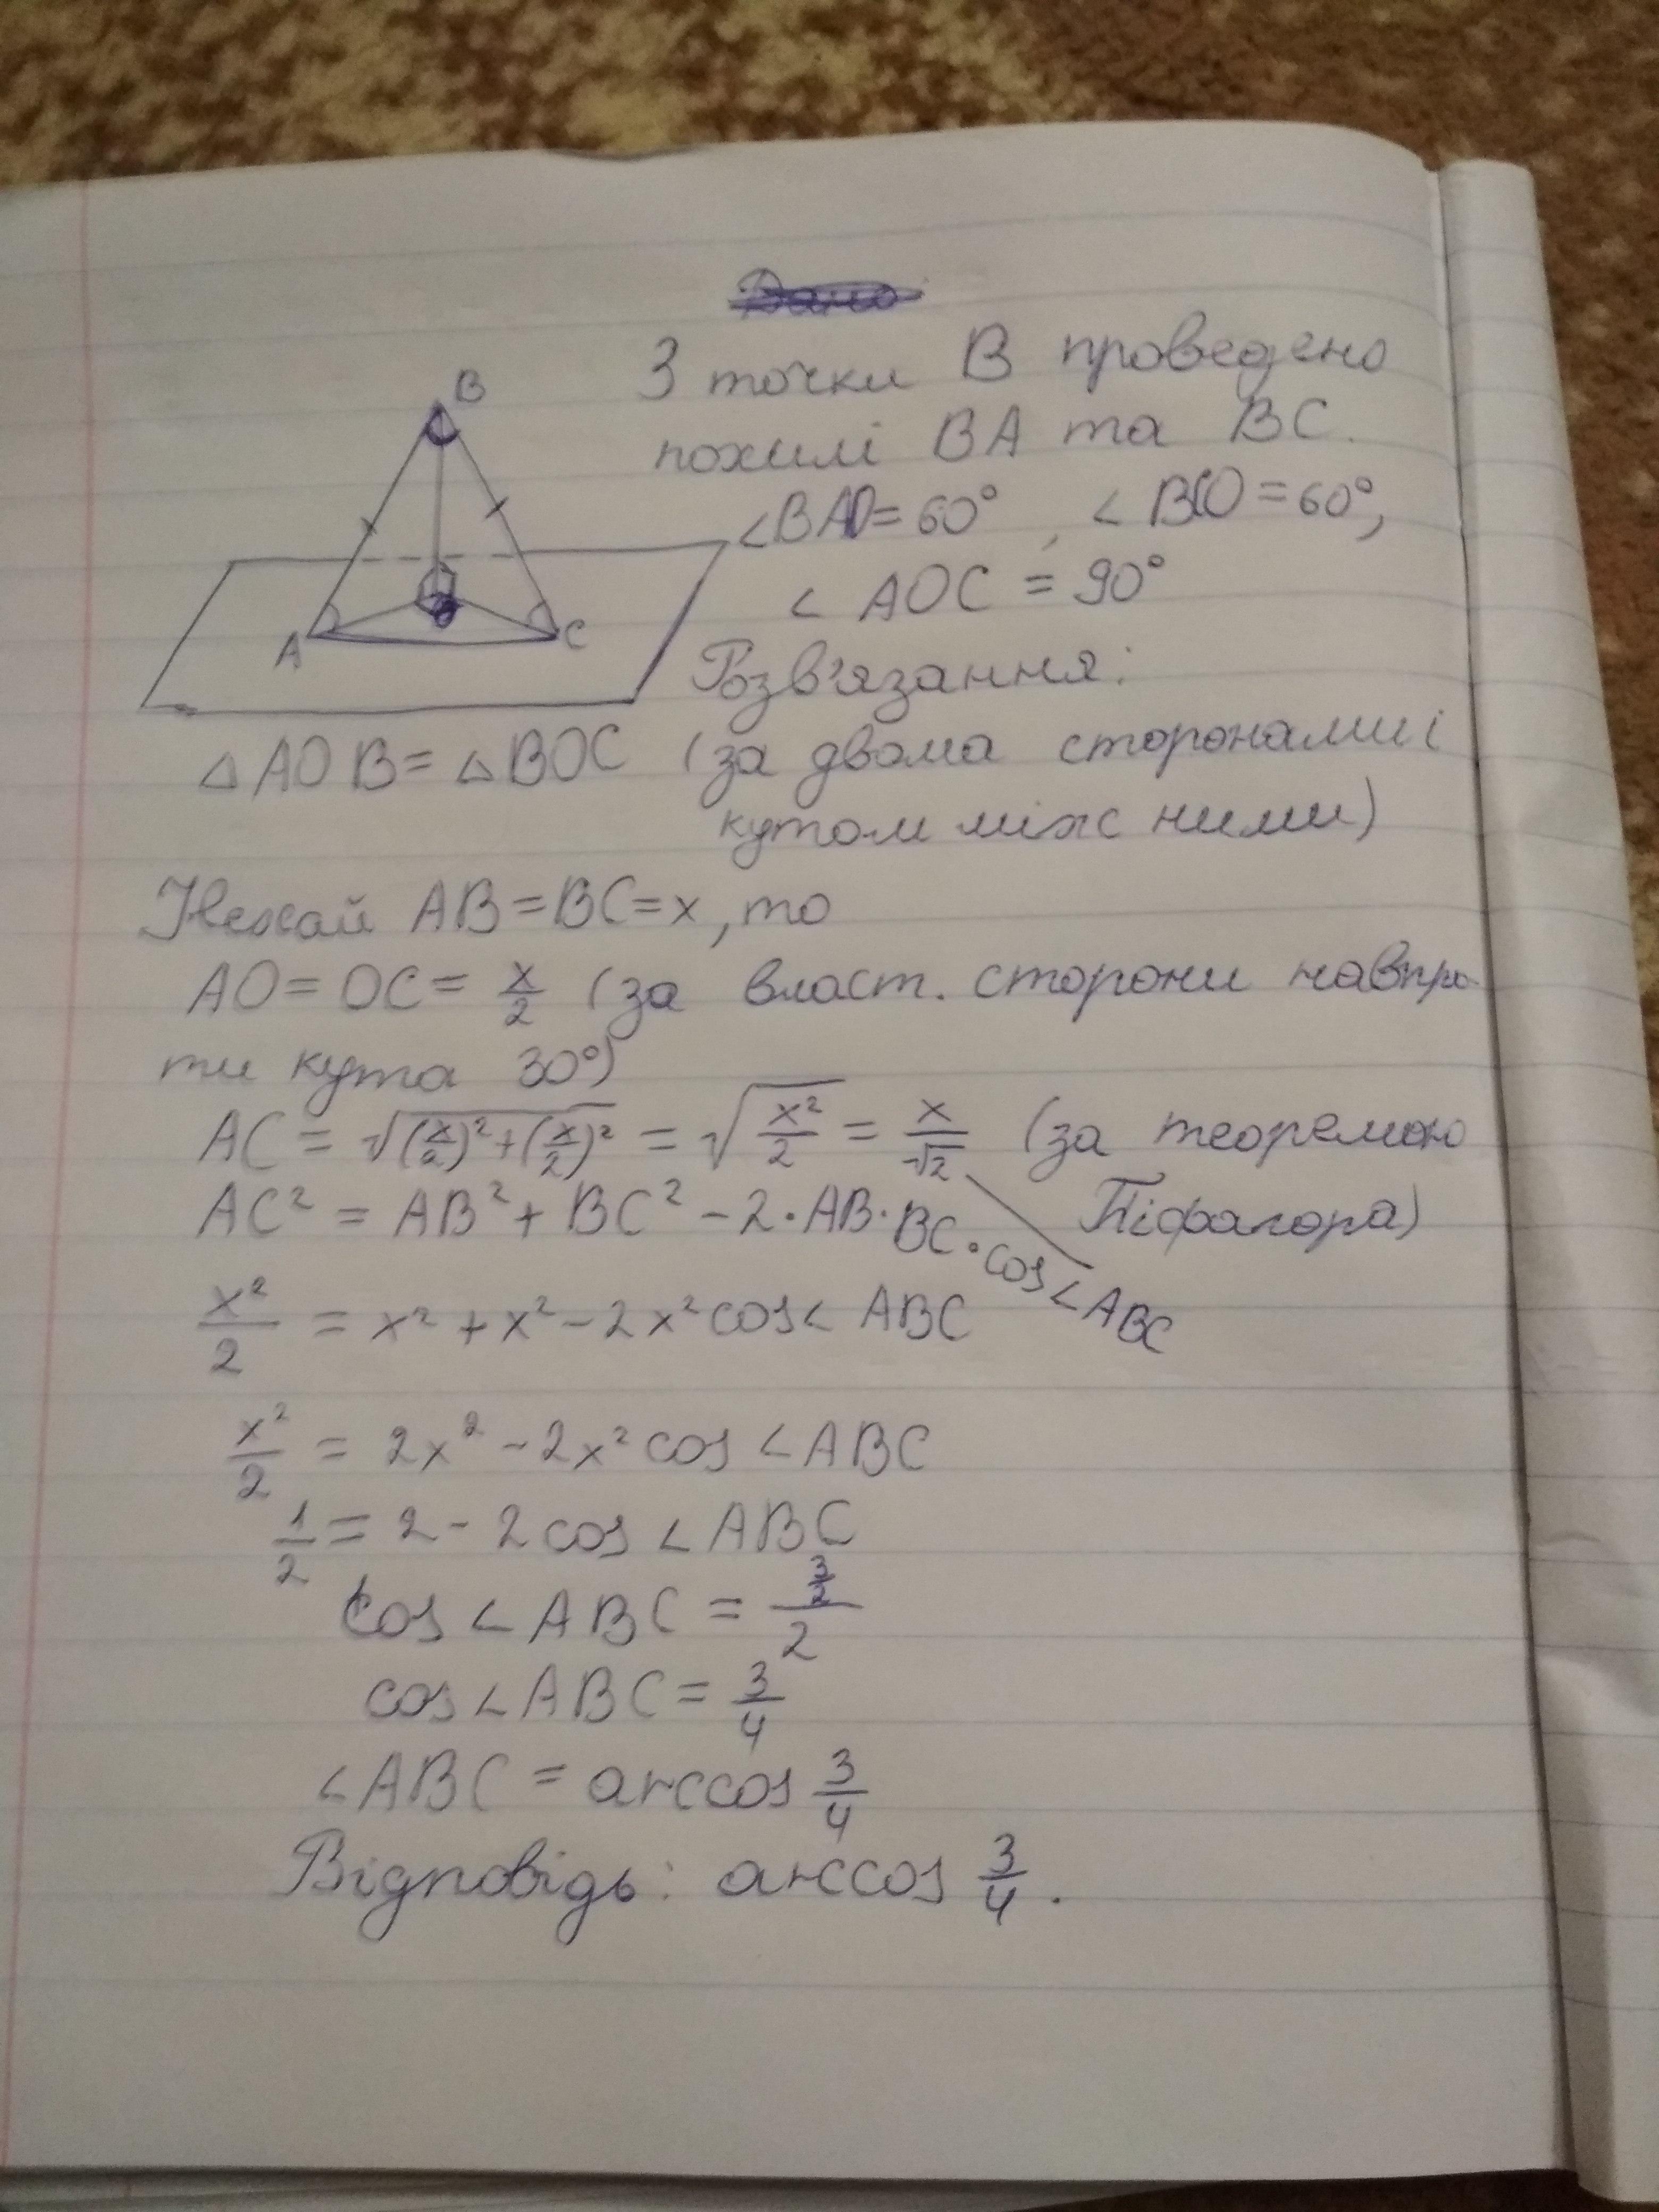 B
A
C
З точки B проведено
похилі BA та BC.
∠BAO=60°, ∠BCO=60°,
∠AOC = 90°
Розв'язання:
△AOB=△BOC (за двома сторонами і
кутом між ними)
Нехай AB=BC=x, то
AO=OC=x/2 (за власт. сторони навпро-
ти кута 30°)
AC = √((x/2)²+(x/2)²) = √(x²/2) = x/√2 (за теоремою
Піфагора)
AC² = AB²+BC²-2·AB·BC·cos∠ABC
x²/2 = x²+x²-2x²cos∠ABC
x²/2 = 2x²-2x²cos∠ABC
1/2=2-2cos∠ABC
cos∠ABC = (3/2)/2
cos∠ABC=3/4
∠ABC = arccos 3/4
Відповідь: arccos 3/4.